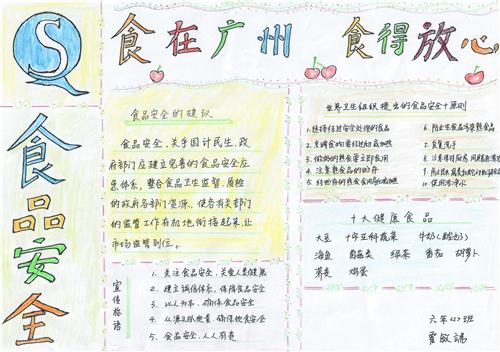 QS
食在广州 食得放心
食品安全
食品安全的建议
食品安全,关乎国计民生,政
府部门应建立完善的食品安全应
急体系,整合食品卫生监督,质检
的政府各部门资源,使各有关部门
的监管工作有机地衔接起来,让
市场监管到位。
世界卫生组织提出的食品安全十原则
1.选择经过安全处理的食品
2.烹调食品
3.做好的熟食
4.注意熟食品的贮存
5.经贮存的熟食
6.防止生食品污染熟食品
7.反复洗手
8.注意保持厨房
10.使用洁净水
十大健康食品
大豆 十字花科蔬菜 牛奶(酸奶)
海鱼 菌菇类 绿茶 番茄 胡萝卜
荞麦 鸡蛋
宣传标语
1. 关注食品安全,关爱人类健康
2. 建立诚信体系,保障食品安全
3. 以人为本,确保食品安全
4. 从源头抓质量,确保饮食安全
5. 食品安全,人人有责
六年(4)班
霍敏端